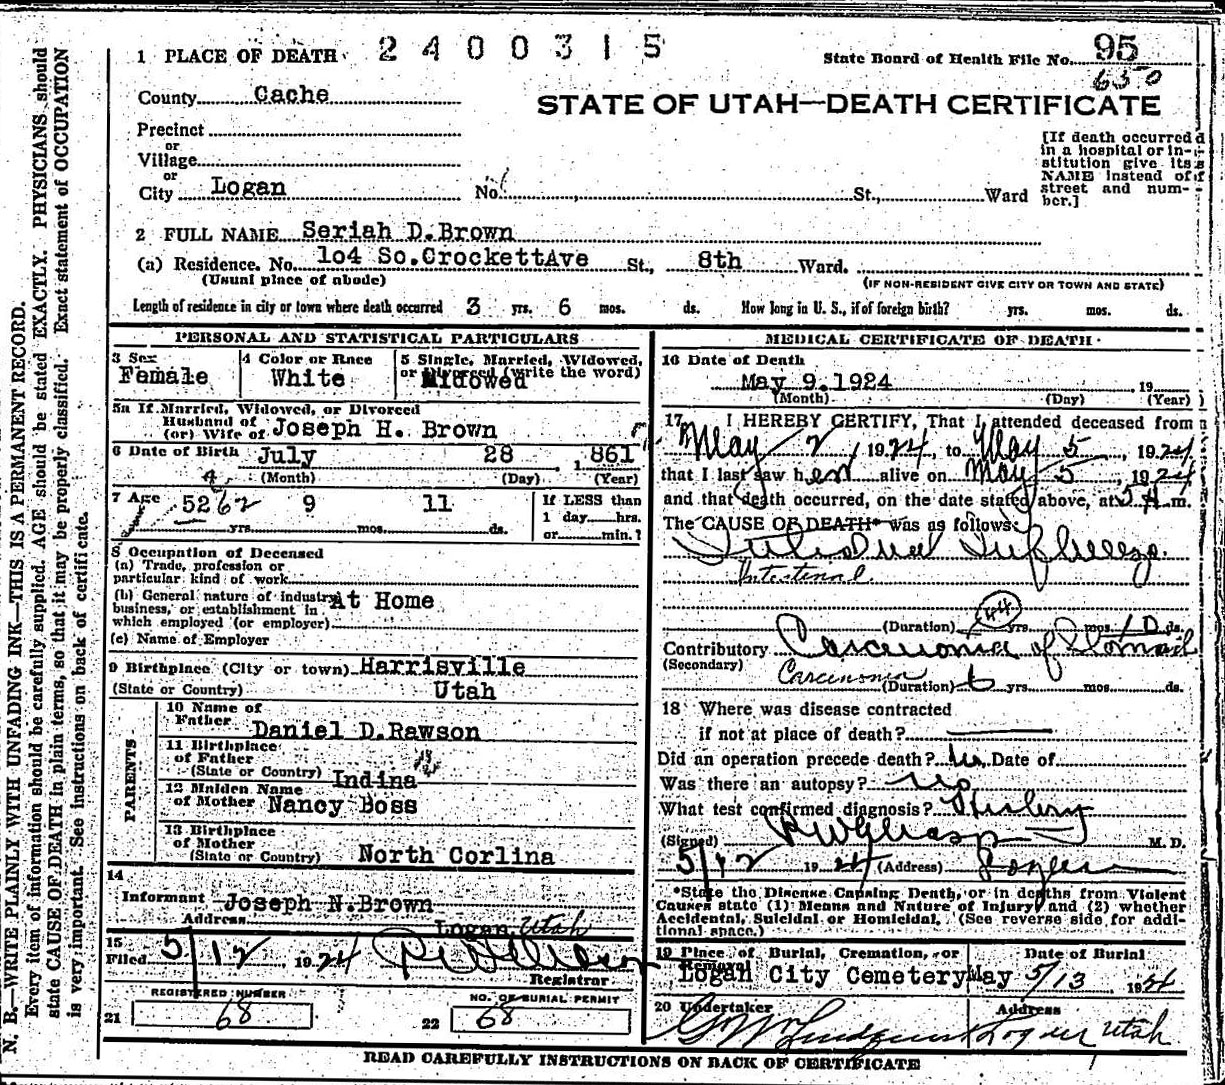 N. B.—WRITE PLAINLY WITH UNFADING INK—THIS IS A PERMANENT RECORD.
Every item of information should be carefully supplied. AGE should be stated EXACTLY. PHYSICIANS should
state CAUSE OF DEATH in plain terms, so that it may be properly classified. Exact statement of OCCUPATION
is very important. See instructions on back of certificate.
1 PLACE OF DEATH 2400315
State Board of Health File No. 95
650
County Cache
STATE OF UTAH—DEATH CERTIFICATE
Precinct
or
Village
or
City Logan No. St., Ward
[If death occurred
in a hospital or in-
stitution give its
NAME instead of
street and num-
ber.]
2 FULL NAME Seriah D.Brown
(a) Residence. No. 1o4 So.CrockettAve St., 8th Ward.
(Usual place of abode) (IF NON-RESIDENT GIVE CITY OR TOWN AND STATE)
Length of residence in city or town where death occurred 3 yrs. 6 mos. ds. How long in U. S., if of foreign birth? yrs. mos. ds.
PERSONAL AND STATISTICAL PARTICULARS
3 Sex
Female
4 Color or Race
White
5 Single, Married, Widowed,
or Divorced (write the word)
Widowed
5a If Married, Widowed, or Divorced
Husband of
(or) Wife of Joseph H. Brown
6 Date of Birth July 28 1861
(Month) (Day) (Year)
7 Age 52 62 9 11
yrs. mos. ds.
If LESS than
1 day hrs.
or min.?
8 Occupation of Deceased
(a) Trade, profession or
particular kind of work
(b) General nature of industry,
business, or establishment in
which employed (or employer)
At Home
(c) Name of Employer
9 Birthplace (City or town) Harrisville
(State or Country) Utah
PARENTS
10 Name of
Father Daniel D.Rawson
11 Birthplace
of Father
(State or Country) Indina
12 Maiden Name
of Mother Nancy Boss
13 Birthplace
of Mother
(State or Country) North Corlina
14
Informant Joseph N.Brown
Address Logan Utah
15
Filed 5/12 1924
Registrar
REGISTERED NUMBER
21 68
NO. OF BURIAL PERMIT
22 68
MEDICAL CERTIFICATE OF DEATH
16 Date of Death
May 9.1924 19
(Month) (Day) (Year)
17 I HEREBY CERTIFY, That I attended deceased from
May 2, 1924, to May 5, 1924
that I last saw her alive on May 5, 1924
and that death occurred, on the date stated above, at 5 A.m.
The CAUSE OF DEATH* was as follows:
Intestinal Influenza.
Intestinal.
44
(Duration) yrs. mos. 10 ds.
Contributory Carcenomia of Stomach
(Secondary)
Carcinoma
(Duration) 6 yrs. mos. ds.
18 Where was disease contracted
if not at place of death?
Did an operation precede death? no Date of
Was there an autopsy? no
What test confirmed diagnosis? History
(Signed) M. D.
5/12 1924 (Address) Logan
*State the Disease Causing Death, or in deaths from Violent
Causes state (1) Means and Nature of Injury and (2) whether
Accidental, Suicidal or Homicidal. (See reverse side for addi-
tional space.)
19 Place of Burial, Cremation, or
Removal
Logan City Cemetery
Date of Burial
May 5/13 1924
20 Undertaker Address
Lindquist Logan Utah
READ CAREFULLY INSTRUCTIONS ON BACK OF CERTIFICATE